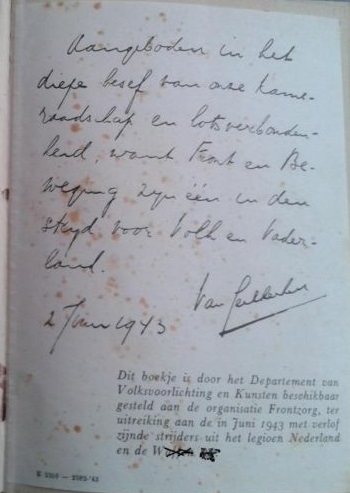 Aangeboden in het
diepe besef van onze kame-
raadschap en lotsverbonden-
heid, want Front en Be-
weging zijn één in den
strijd voor Volk en Vader-
land.
2 Juni 1943
Van
Dit boekje is door het Departement van
Volksvoorlichting en Kunsten beschikbaar
gesteld aan de organisatie Frontzorg, ter
uitreiking aan de in Juni 1943 met verlof
zijnde strijders uit het legioen Nederland
en de